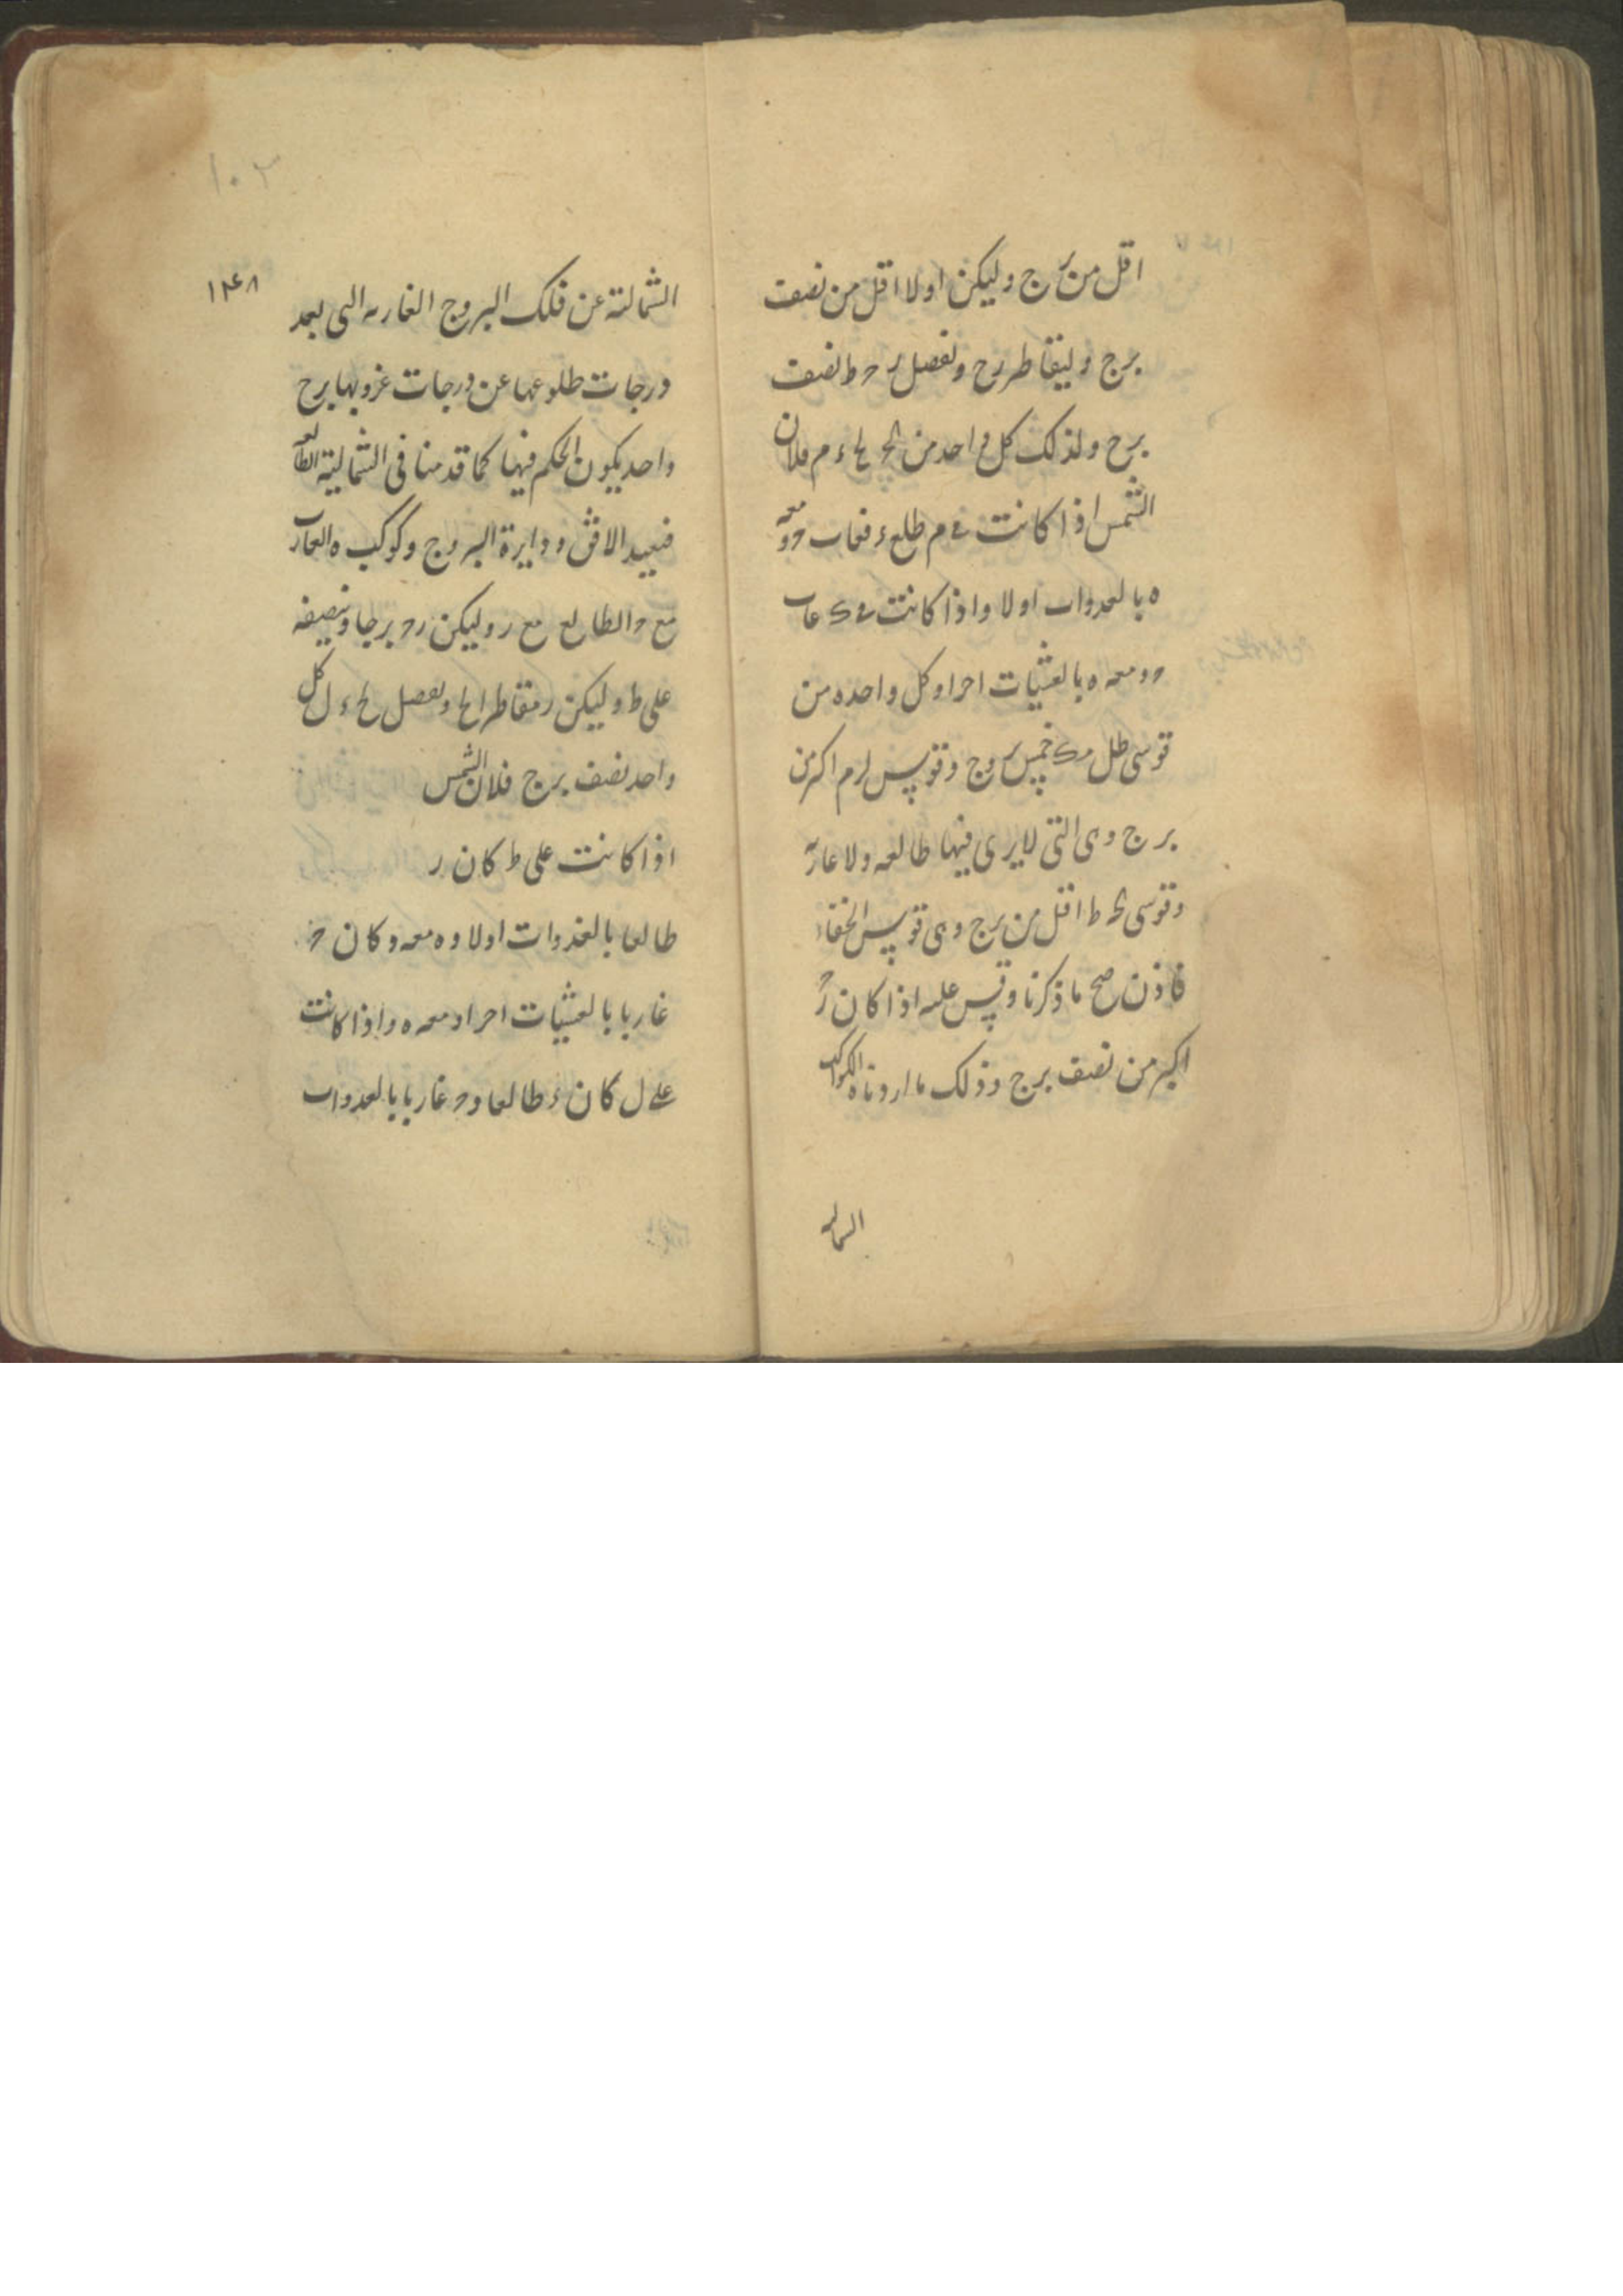 اقل من برج وليكن اولا اقل من نصف
برج وليقاطر رح ونفصل ر ح ط نصف
برج ولذلك كل واحد من لح ء م فلان
الشمس اذا كانت في م طلع ء فغاب ح ومعه
ه بالغدوات اولا واذا كانت في ك غاب
ح ومعه ه بالعشيات اخرا وكل واحده من
قوسى طل مك خمس بروج وقوس لم اكثر من
برج وهى التى لا يرى فيها طالعه ولا غاربه
وقوسى ط اقل من برج وهى قوس الخفاء
فاذن صح ما ذكرنا وقس عليه اذا كان رح
اكبر من نصف برج وذلك ما اردناه الكواكب
الشماليه
١٠٢
١٢٤٨
الشمالية عن فلك البروج الغاربه التى بعد
درجات طلوعها عن درجات غروبها برج
واحد يكون الحكم فيها كما قدمنا فى الشمالية الطالعه
فنعيد الافق ودايرة البروج وكوكب ه الغارب
مع ح والطالع مع ر وليكن رح برجا وننصفه
على ط وليكن ر مقاطرا لح ونفصل لح ء ل كل
واحد نصف برج فلان الشمس
اذا كانت على ط كان ر
طالعا بالغدوات اولا وه معه وكان ح
غاربا بالعشيات اخرا ومعه ه واذا كانت
على ل كان ء طالعا وح غاربا بالغدوات